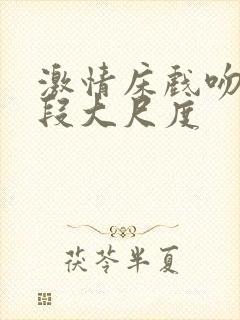 激情床戏吻
段大尺度
茯苓半夏